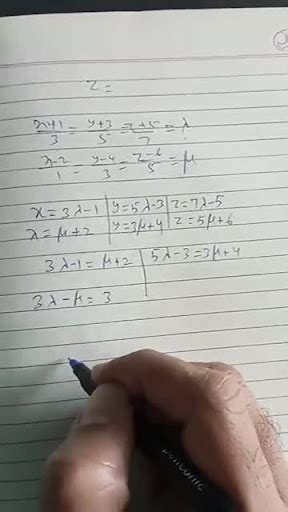 z =
x+1/3 = y+3/5 = z+5/7 = λ
x-2/1 = y-4/3 = z-6/5 = μ
x = 3λ-1 | y = 5λ-3 | z = 7λ-5
x = μ+2 | y = 3μ+4 | z = 5μ+6
3λ-1 = μ+2 | 5λ-3 = 3μ+4
3λ-μ = 3